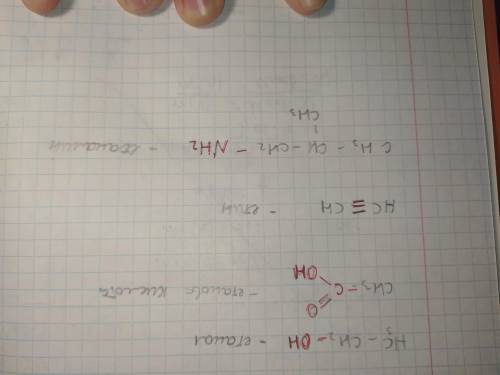 H3C – CH2 – OH – етанол
O
CH3 – C – етанова кислота
OH
HC ≡ CH – етин
CH3 – CH – CH2 – NH2 –
CH3